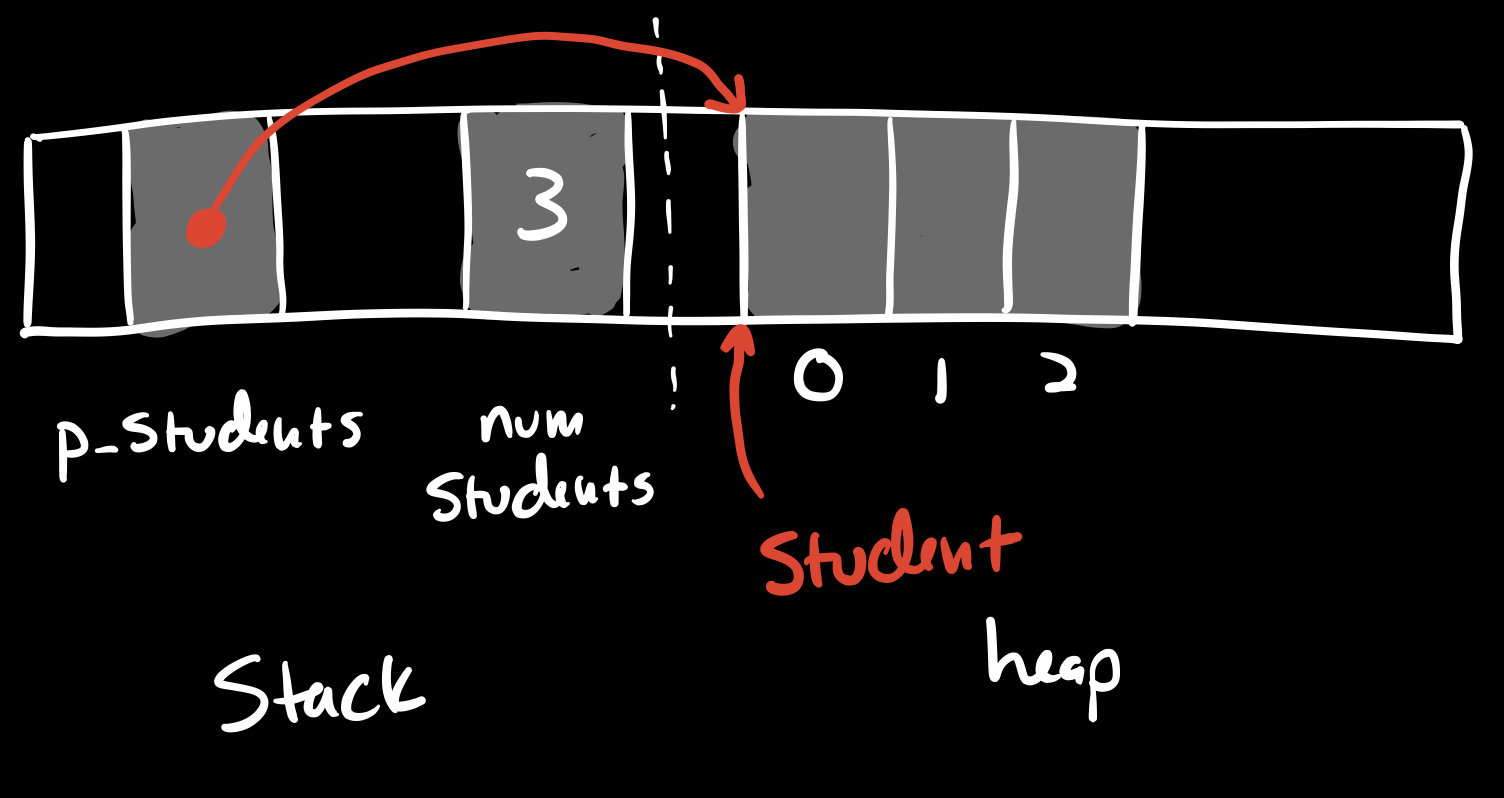 3
0 1 2
p_students
num
students
Student
Stack
heap